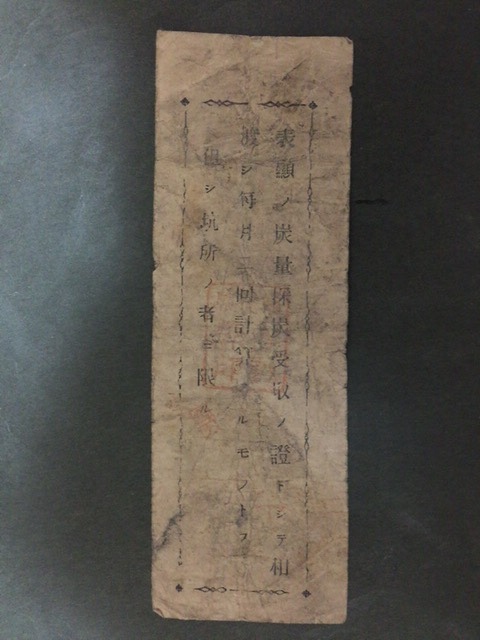 表顯ノ炭量採炭受取ノ證トシテ相
渡シ毎月三回計算スルモノトス
但シ坑所ノ者ニ限ル